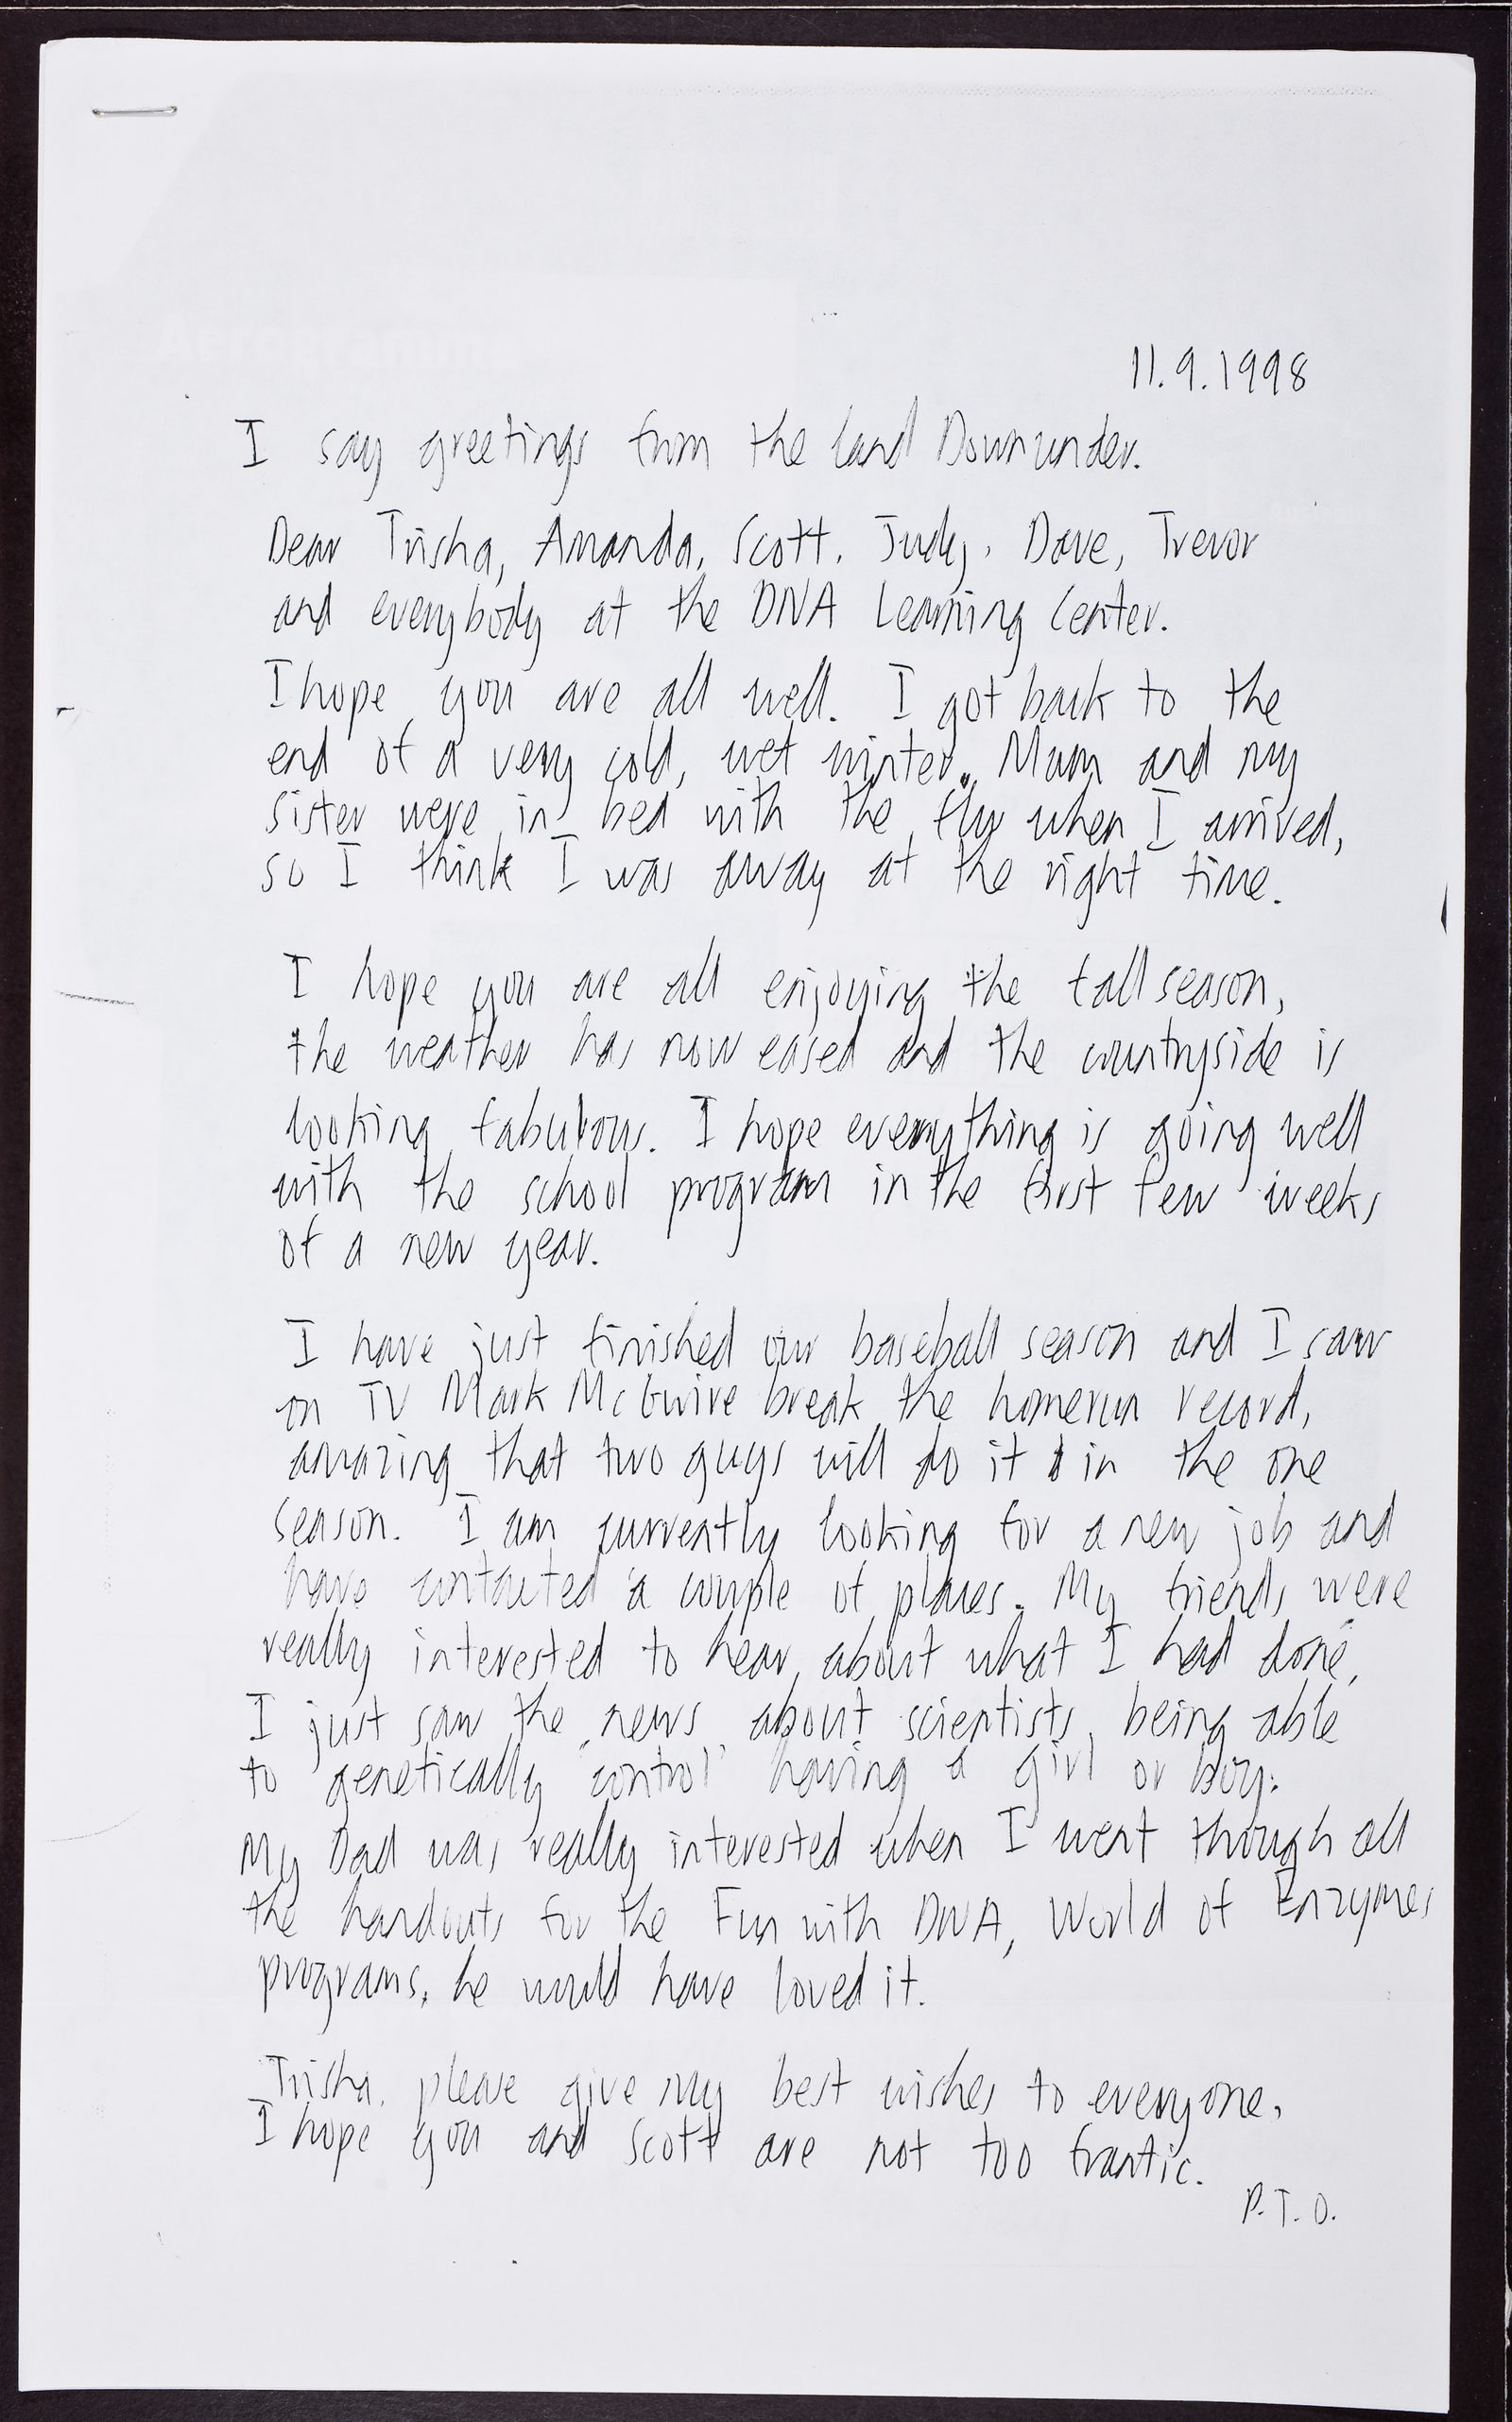 11.9.1998
I say greetings from the land Downunder.
Dear Trisha, Amanda, Scott, Judy, Dave, Trevor
and everybody at the DNA Learning Center.
I hope you are all well. I got back to the
end of a very cold, wet winter. Mum and my
sister were in bed with the flu when I arrived,
so I think I was away at the right time.
I hope you are all enjoying the fall season,
the weather has now eased and the countryside is
looking fabulous. I hope everything is going well
with the school program in the first few weeks
of a new year.
I have just finished our baseball season and I saw
on TV Mark McGwire break the homerun record,
amazing that two guys will do it in the one
season. I am currently looking for a new job and
have contacted a couple of places. My friends were
really interested to hear about what I had done,
I just saw the news about scientists being able
to genetically "control" having a girl or boy.
My Dad was really interested when I went though all
the handouts for the Fun with DNA, World of Enzymes
programs, he would have loved it.
Trisha, please give my best wishes to everyone,
I hope you and Scott are not too frantic.
P.T.O.